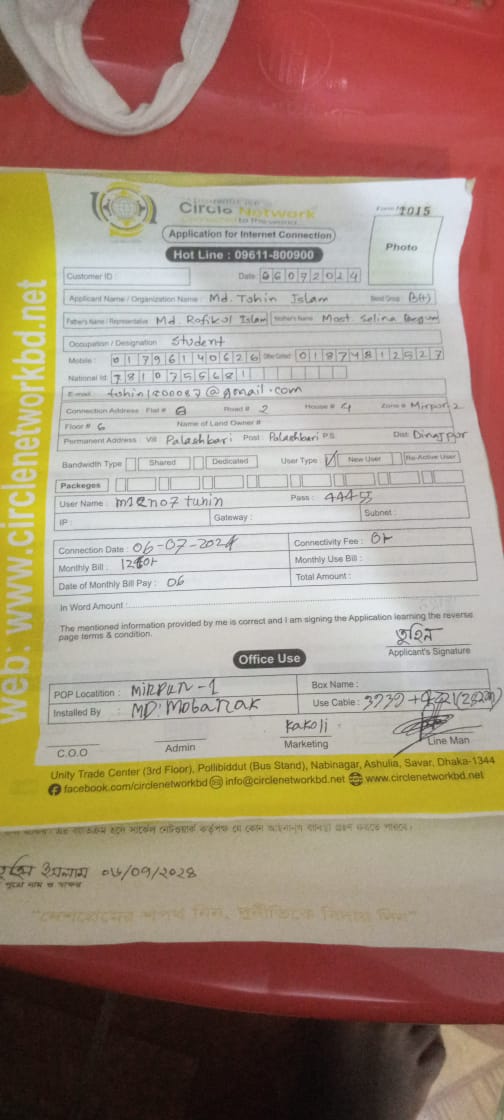 Circle Network
connected to the world
Form No 1015
Application for Internet Connection
Hot Line : 09611-800900
Photo
Customer ID :
Date 06072024
Applicant Name / Organization Name : Md. Tohin Islam Blood Group : B(+)
Father's Name / Representative Md. Rofikol Islam Mother's Name Most. Selina Begum
Occupation / Designation Student
Mobile : 01796140626 Other Contact 01874812527
National Id 7810755681
E-mail tuhin1800087@gmail.com
Connection Address Flat # Road # 2 House # 4 Zone # Mirpur 2
Floor # 6 Name of Land Owner #
Permanent Address Vill Palashbari Post : Palashbari P.S Dist: Dinajpur
Bandwidth Type Shared Dedicated User Type : New User Re-Active User
Packeges
User Name : m1cno7tuhin Pass : 44455
IP : Gateway : Subnet :
Connection Date : 06-07-2024 Connectivity Fee :
Monthly Bill : Monthly Use Bill :
Date of Monthly Bill Pay : 06 Total Amount :
In Word Amount :
The mentioned information provided by me is correct and I am signing the Application learning the reverse
page terms & condition.
তুহিন
Applicant's Signature
Office Use
POP Localtition : MIRPUR-1 Box Name :
Installed By : MD: Mobarak Use Cable :
C.O.O Admin Kakoli Marketing Line Man
Unity Trade Center (3rd Floor), Pollibiddut (Bus Stand), Nabinagar, Ashulia, Savar, Dhaka-1344
facebook.com/circlenetworkbd info@circlenetworkbd.net www.circlenetworkbd.net
web: www.circlenetworkbd.net
ইসলাম
"দেশপ্রেমের শপথ নিন, দুর্নীতিকে বিদায় দিন"